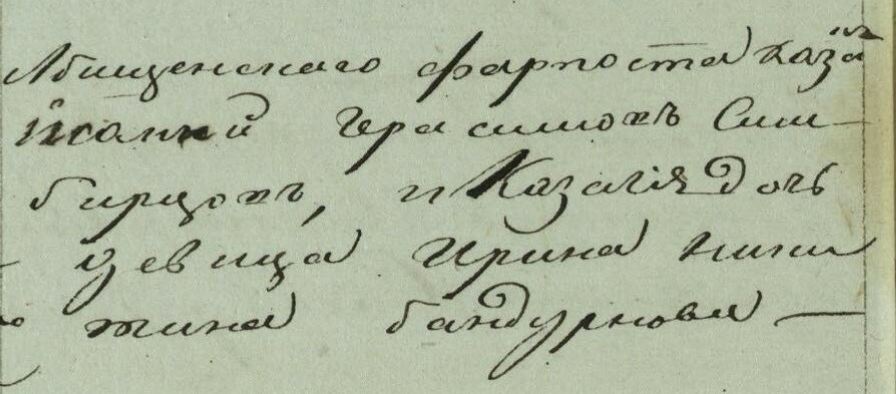 Абищенскаго форпоста каза
Иоаннъ Герасимовъ Сим-
бирцовъ, и Казачья дочь
девица Ирина Ники
тина Бандуркова —